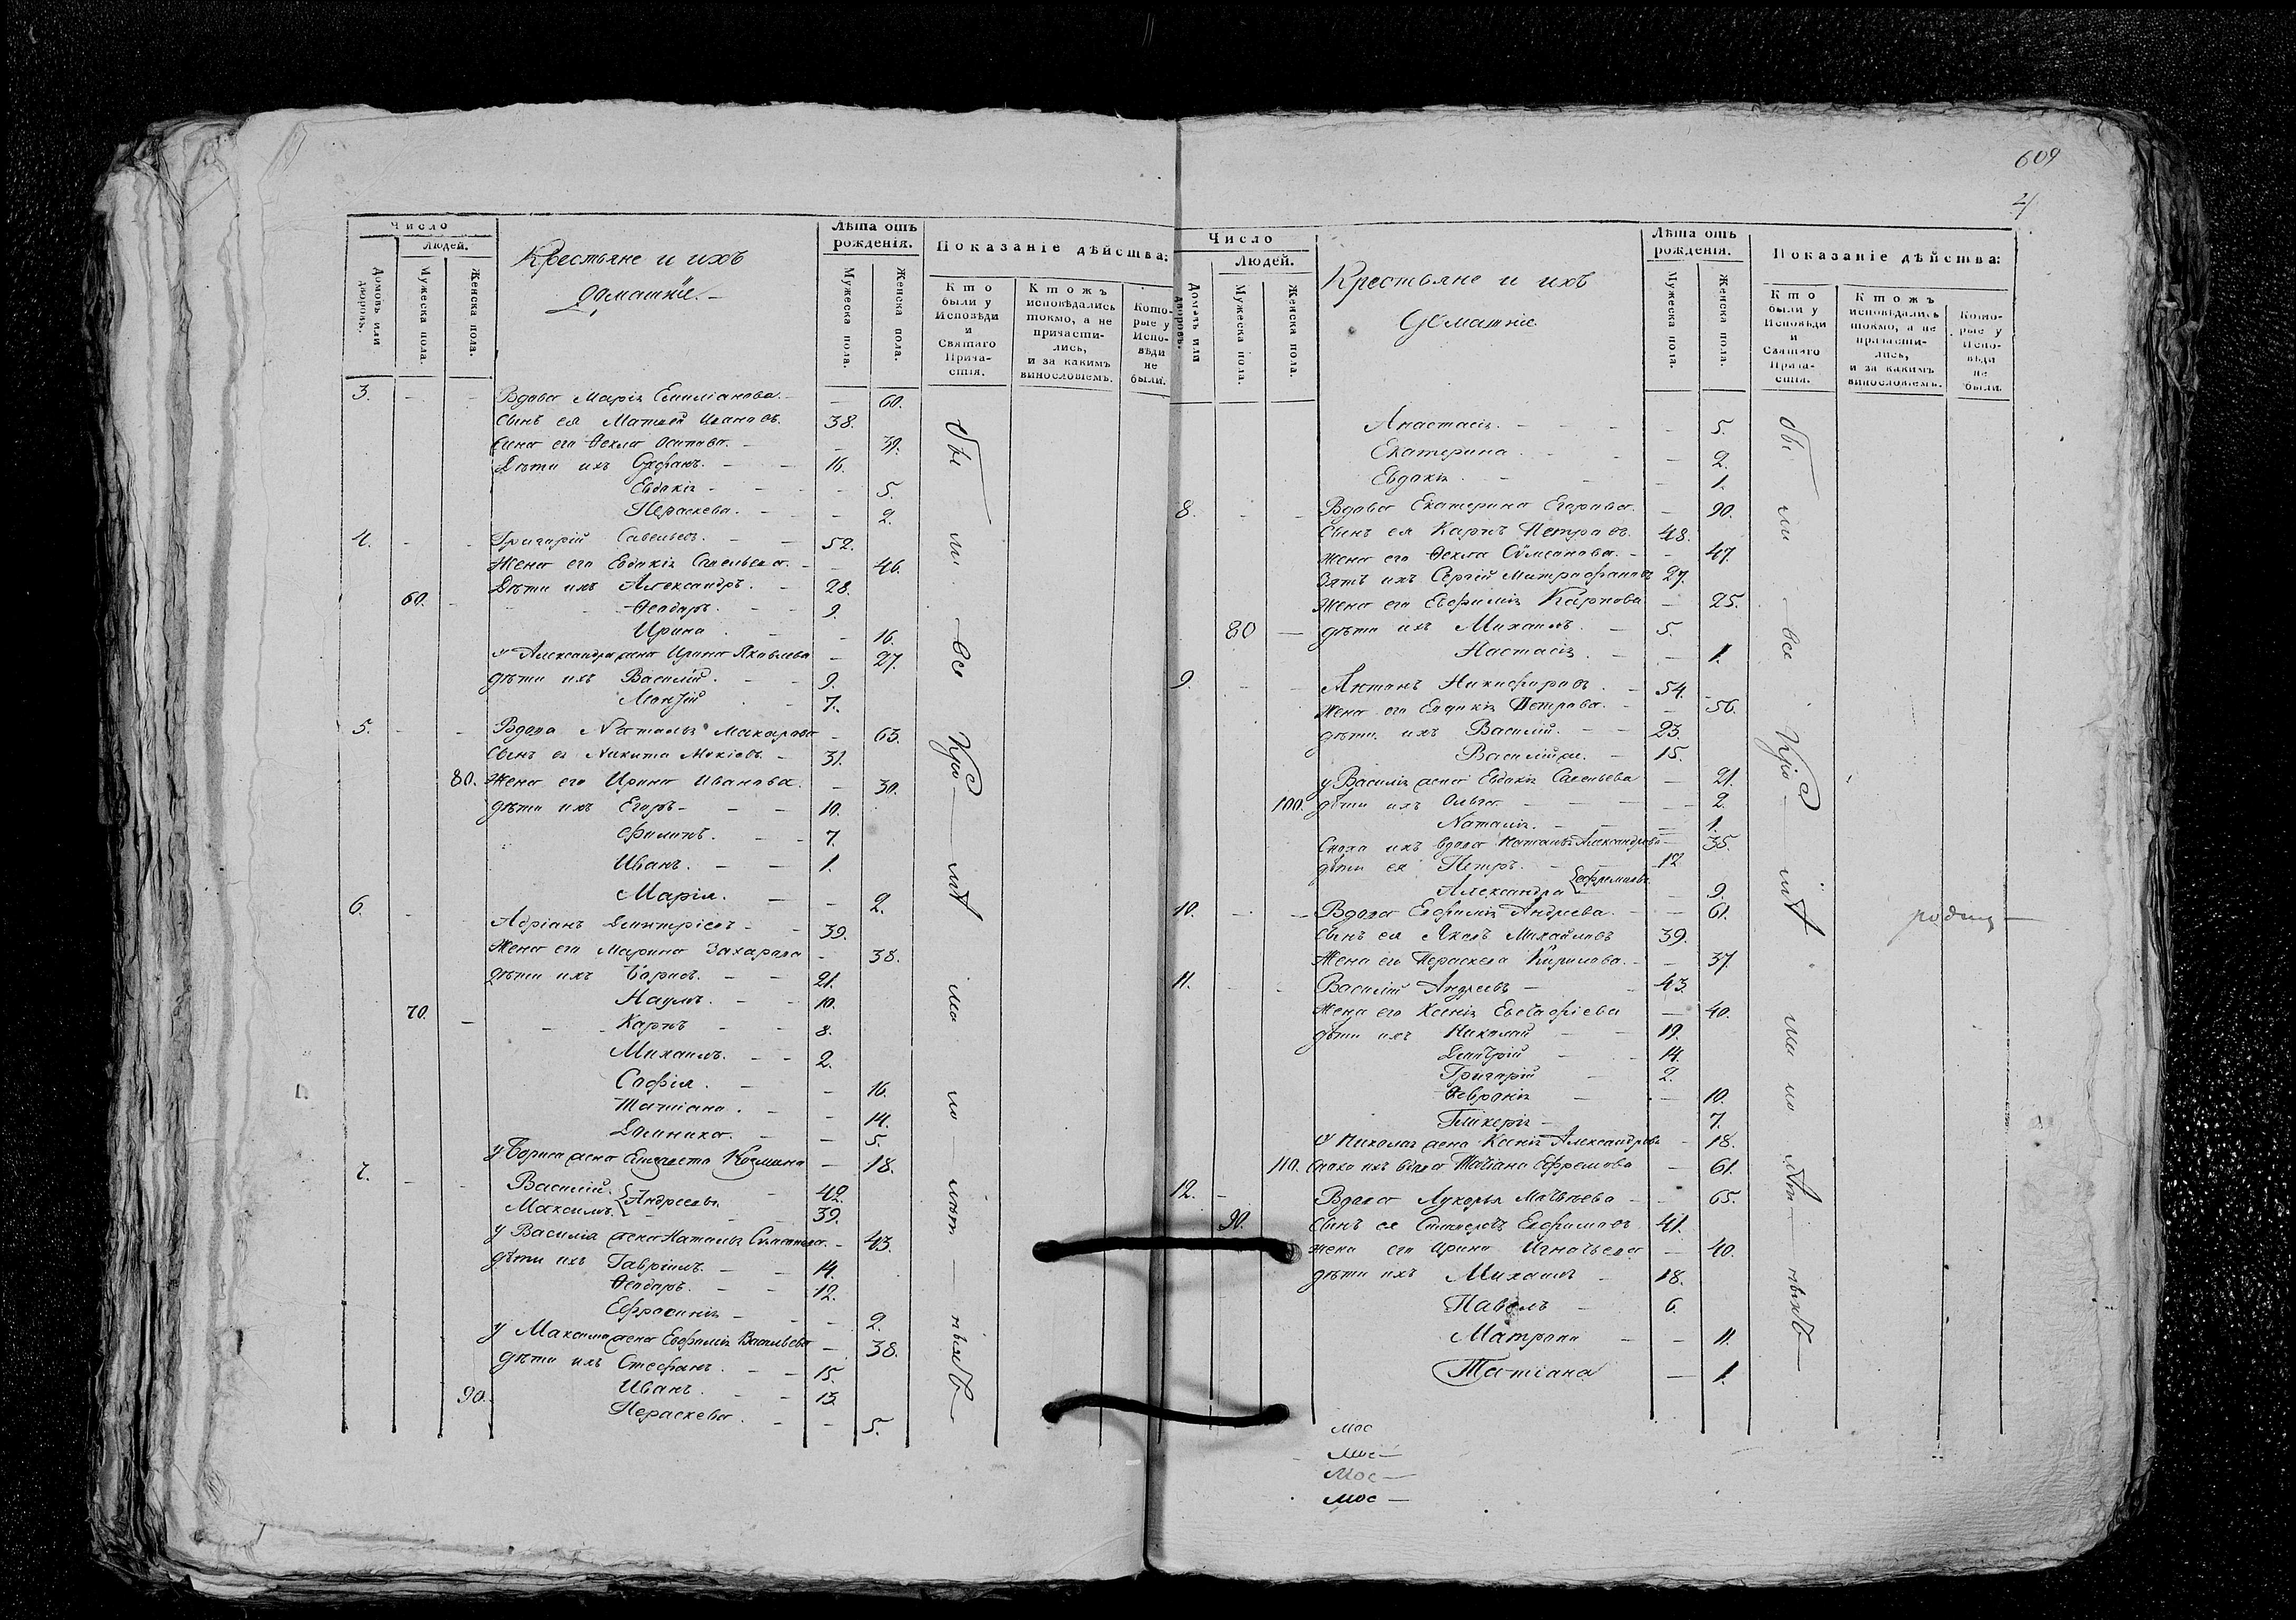 609
4
Число
Людей.
Домовъ или дворовъ.
Мужеска пола.
Женска пола.
Крестьяне и ихъ
домашніе.
Лѣта отъ рожденія.
Мужеска пола.
Женска пола.
Показаніе дѣйства:
Кто были у Исповѣди и Святаго Прича-стія.
Ктожъ исповѣдались токмо, а не причасти-лись, и за какимъ винословіемъ.
Кото-рые у Испо-вѣди не были.
3. Вдова Марія Емиліанова 60.
Сынъ ея Матвей Иванов 38.
Жена его Ѳекла Осипова 39.
Дѣти ихъ 16.
Евдакія 5.
Пераскева 2.
4. Григорій Савельев 52.
Жена его Евдакія Савельева 46.
Дѣти ихъ Александръ 28.
60. Ѳеодоръ 9.
Ирина 16.
У Александра жена Ирина Яковлева 27.
дѣти ихъ Василій 9.
7.
5. Вдова Наталья Макарова 63.
Сынъ ея Никита 31.
80. Жена его Ирина Иванова 30.
дѣти ихъ Егоръ 10.
Филипъ 7.
Иванъ 1.
Марія 2.
6. Адріанъ Дмитріевъ 39.
Жена его Марина Захарова 38.
дѣти ихъ Борисъ 21.
Наумъ 10.
70. Карпъ 8.
Михаилъ 2.
Софія 16.
Татіана 14.
Домника 5.
у Бориса жена Козмина 18.
7. Василий Андреевы 42.
Максимъ 39.
у Василія жена Наталья 43.
дѣти ихъ Гавріилъ 14.
Ѳеодоръ 12.
Ефрасинія 2.
у Максима жена Евфимія Васильева 38.
дѣти ихъ Стефанъ 15.
Иванъ 13.
90. Пераскева 5.
Число
Людей.
Домовъ или дворовъ.
Мужеска пола.
Женска пола.
Крестьяне и ихъ
домашніе
Лѣта отъ рожденія.
Мужеска пола.
Женска пола.
Показаніе дѣйства:
Кто были у Исповѣди и Святаго Прича-стія.
Ктожъ исповѣдались токмо, а не причасти-лись, и за какимъ винословіемъ.
Кото-рые у Испо-вѣди не были.
Анастасія 5.
Екатерина 2.
Евдакія 1.
8. Вдова Екатерина Егорова 90.
Сынъ ея Карпъ Петровъ 48.
Жена его Ѳекла 47.
Зять ихъ Сергій Митрофановъ 27.
Жена его Евфимія Карпова 25.
80 дѣти ихъ Михаилъ 5.
Настасія 1.
9. Никифоровъ 54.
Жена его Евдакія Петрова 56.
дѣти ихъ Василій 23.
15.
у Василія жена Евдакія Савельева 21.
100. дѣти ихъ Ольга 2.
Наталія 1.
Сноха ихъ вдова Наталья Александрова 35.
дѣти ея Петръ 12
Александра Ефремовы 9.
10. Вдова Евфимія Андреева 61. родину
Сынъ ея Яковъ Михайловъ 39.
Жена его Пераскева Кирилова 37.
11. Василій Андреевъ 43.
Жена его Ксенія Евстафіева 40.
дѣти ихъ Николай 19.
Дмитрій 14.
Григорій 2.
Ѳевронія 10.
Гликерія 7.
У Николая жена Ксенія Александрова 18.
110. сноха ихъ вдова Татіана Ефремова 61.
12. Вдова Лукерья Матвѣева 65.
90. Сынъ ея Евфимовъ 41.
жена его Ирина Игнатьева 40.
дѣти ихъ Михаилъ 18.
Павелъ 6.
Матрона 11.
Татіана 1.
мос
мос
мос
мос